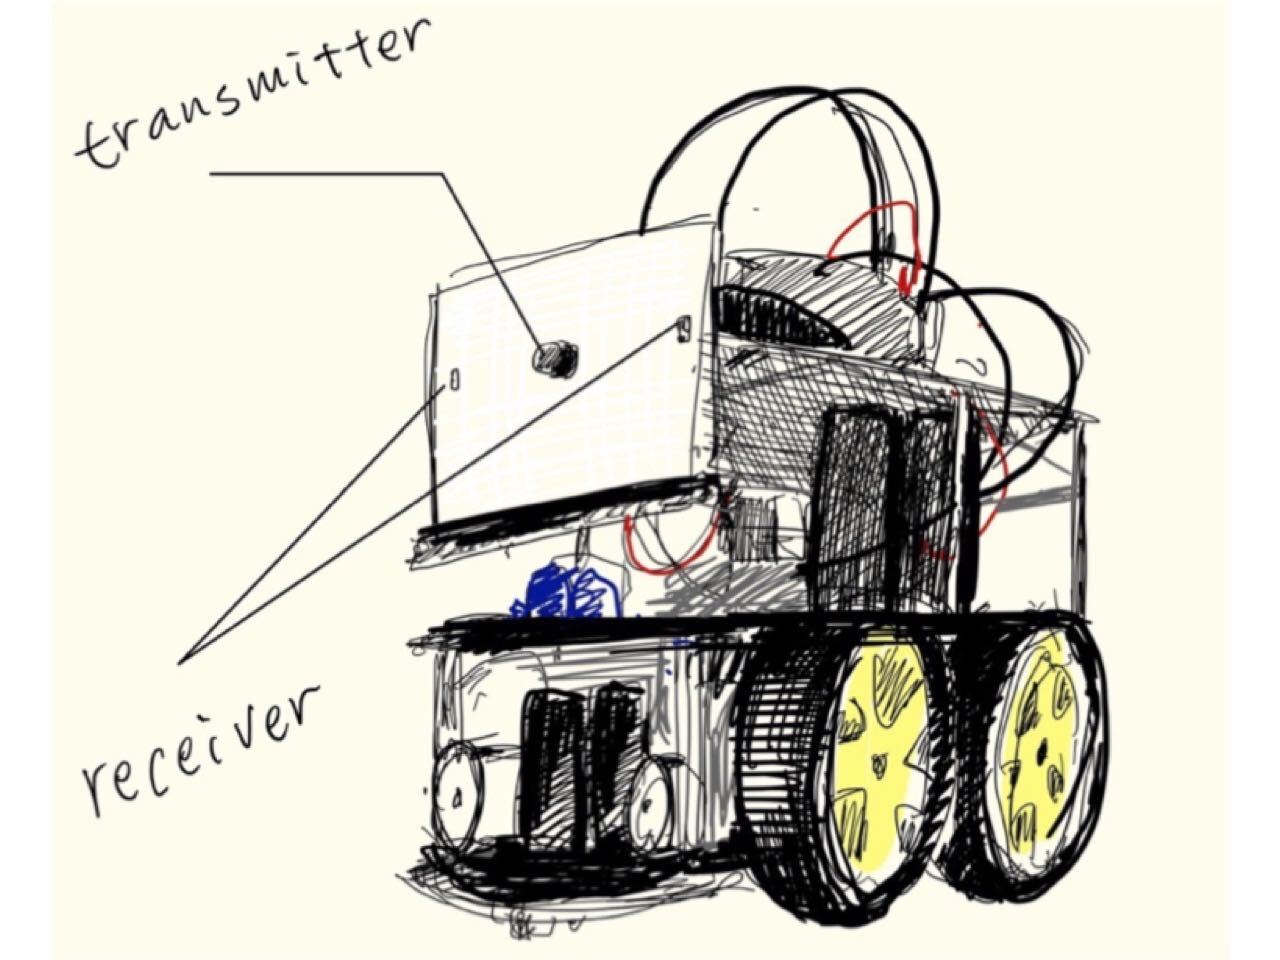 transmitter
receiver